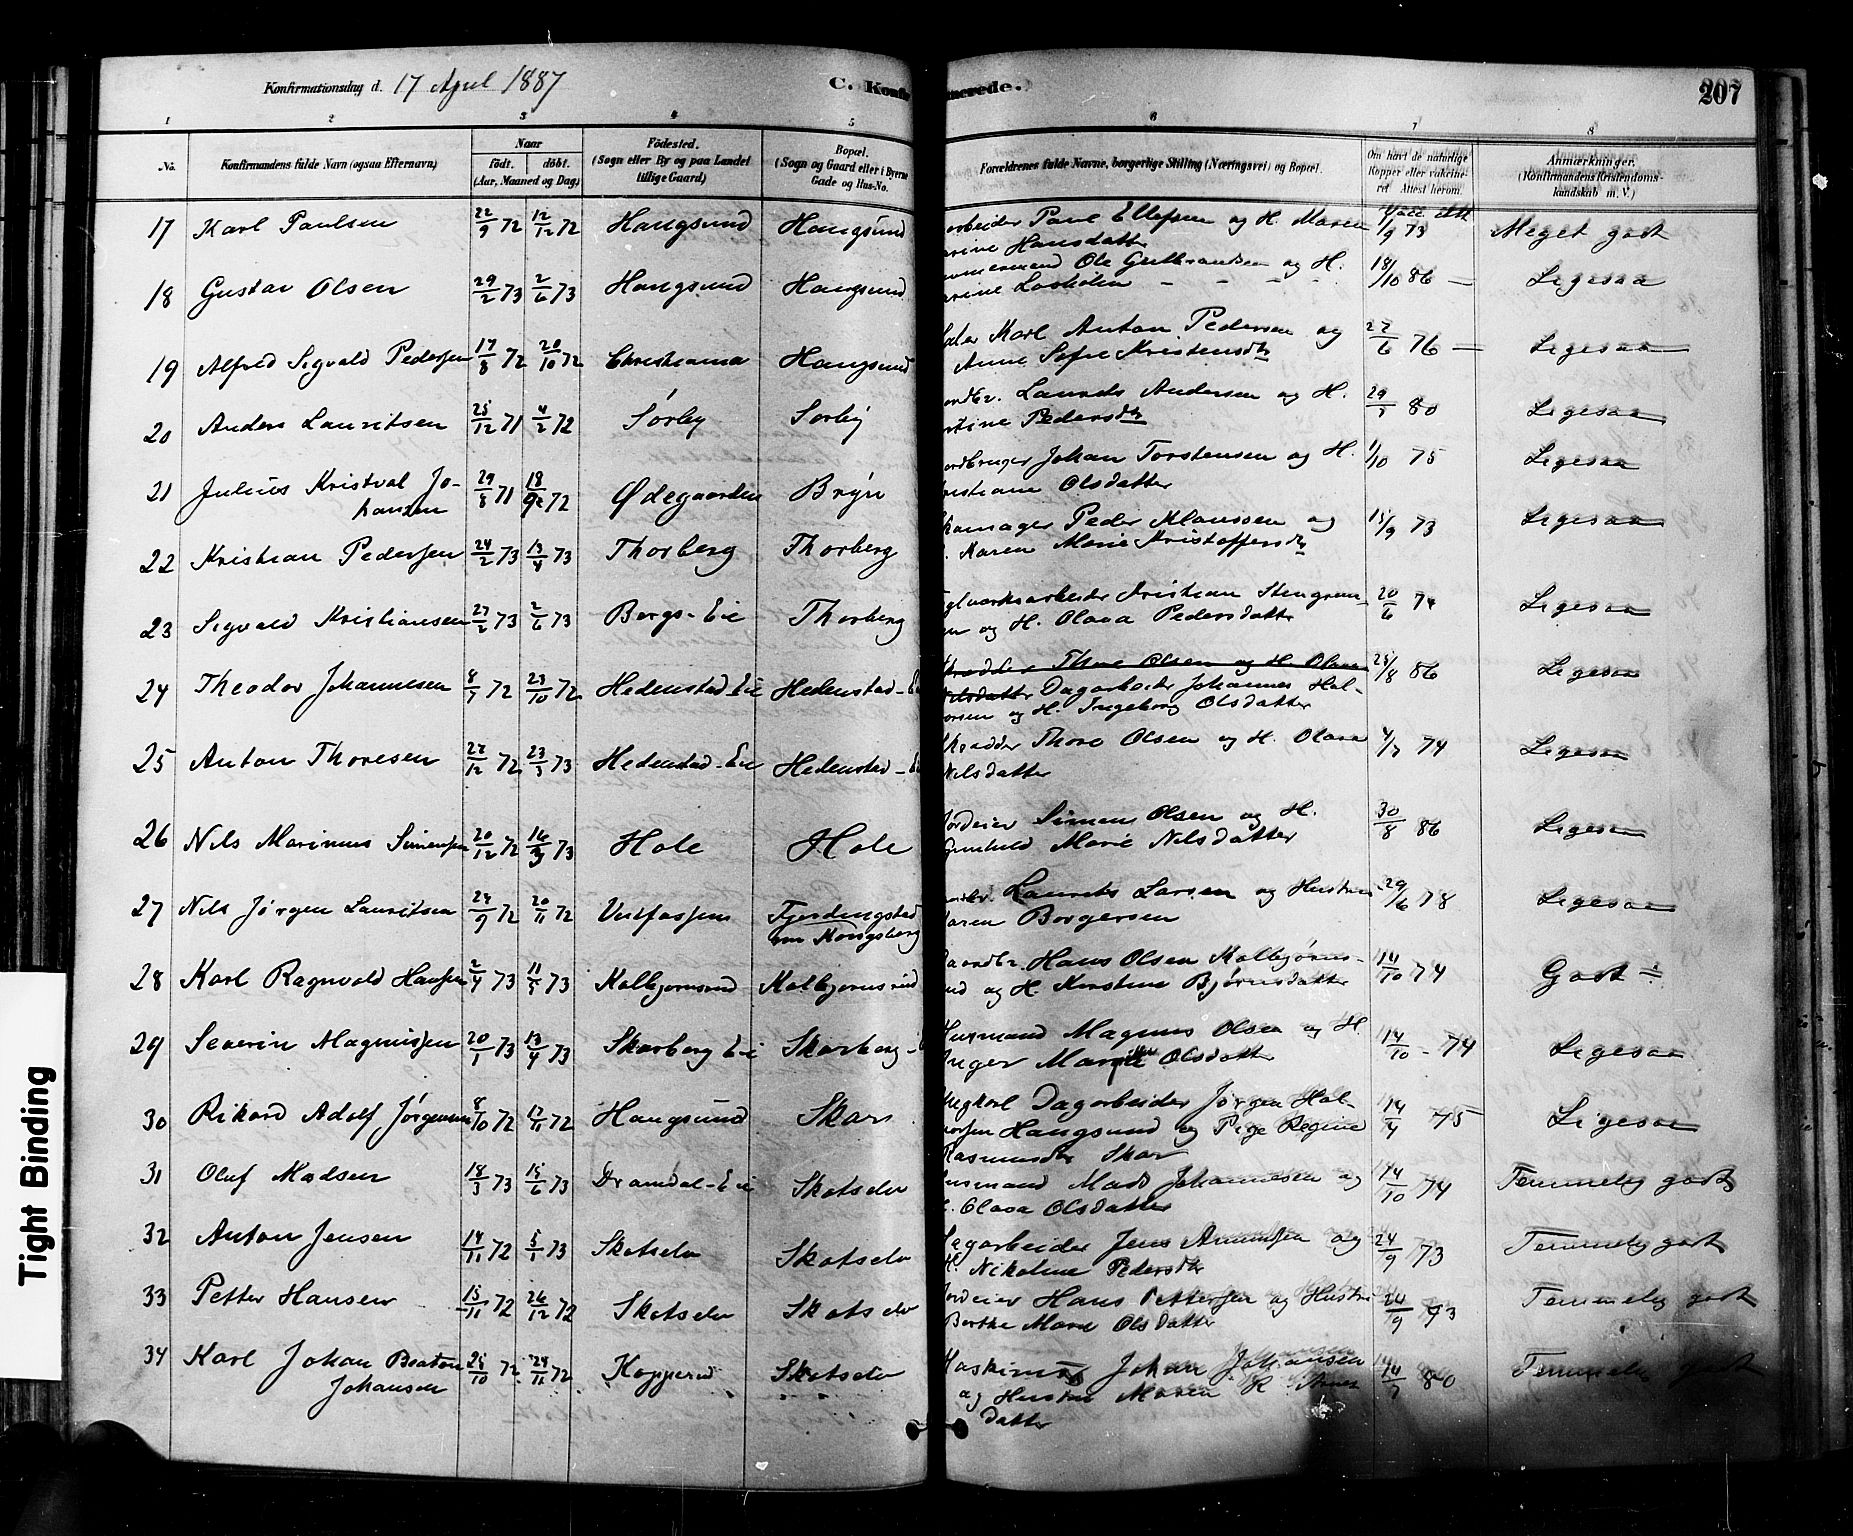 Konfirmationsdag d. 17 April 1887
C. Konfir
merede.
207
1 2 3 4 5 6 7 8
No. Konfirmandens fulde Navn (ogsaa Efternavn). Naar født. døbt. (Aar, Maaned og Dag.) Fødested. (Sogn eller By og paa Landet tillige Gaard.) Bopæl. (Sogn og Gaard eller i Byerne Gade og Hus-No.
Forældrenes fulde Navne, borgerlige Stilling (Næringsvei) og Bopæl. Om havt de naturlige Kopper eller vakcineret. Attest herom. Anmærkninger. (Konfirmandens Kristendomskundskab m. V.)
17 Karl Paulsen 22/9 72 12/12 72 Haugsund Haugsund arbeider Paul Ellefsen og H. Maren 1/9 73 Meget godt
Hansdatter
18 Gustav Olsen 29/2 73 2/6 73 Haugsund Haugsund Ole Gulbrandsen og H. 18/10 86 — Ligesaa
19 Alfred Sigvald Pedersen 17/8 72 20/10 72 Christiania Haugsund Karl Anton Pedersen og 27/6 76 — Ligesaa
Anne Sofie Kristensdtr
20 Anders Lauritsen 25/12 71 4/2 72 Sørby Sørby Laurits Andersen og H. 80 Ligesaa
Pedersdtr
21 Julius Kristval Jo- 29/8 71 18/ 72 Ødegaarden Bryn Johan Torstensen og H. 1/10 75 Ligesaa
hansen Olsdatter
22 Kristian Pedersen 24/2 73 13/4 73 Thorberg Thorberg Skomager Peder Klaussen og 15/9 73 Ligesaa
Karen Marie Kristoffersdtr
23 Sigvald Kristiansen 27/2 73 2/6 73 Bergs-Eie Thorberg Kristian 20/6 74 Ligesaa
og H. Olava Pedersdatter
24 Theodor Johannesen 8/7 72 23/10 72 Hedenstad-Eie Hedenstad-E Skrædder Thore Olsen og H. Olava 25/8 86 Ligesaa
Nilsdatter Dagarbeider Johannes Hal-
vorsen og H. Ingeborg Olsdatter
25 Anton Thoresen 27/12 72 23/3 73 Hedenstad-Eie Hedenstad-E Skrædder Thore Olsen og H. Olava 4/7 74 Ligesaa
Nilsdatter
26 Nils Marinus Simensen 20/12 72 16/3 73 Hole Hole Jordeier Simen Olsen og H. 30/8 86 Ligesaa
Gunhild Marie Nilsdatter
27 Nils Jørgen Lauritsen 24/9 72 20/11 72 Vestfossen Fjerdingstad Laurits Larsen og Hustru 29/6 78 Ligesaa
Kongsberg Karen Borgersen
28 Karl Ragnvald Hansen 2/4 73 11/5 73 Kolbjørnsrud Kolbjørnsrud Gaardbr. Hans Olsen Kolbjørns- 14/10 74 Godt
rud og H. Kirstine Bjørnsdatter
29 Severin Magnussen 20/1 73 13/4 73 Skarberg Eie Skarberg- Husmand Magnus Olsen og H. 14/10 - 74 Ligesaa
Inger Olsdatter
30 Rikard Adolf Jørgensen 8/10 72 17/11 72 Haugsund Skar Ungkarl Dagarbeider Jørgen Hal- 14/4 75 Ligesaa
vorsen Haugsund og Pige Regine
Rasmusdtr Skar
31 Oluf Madsen 18/3 73 15/6 73 Dramdal-Eie Skotselv Husmand Mads Johannesen og 14/10 74 Temmelig godt
H. Olava Olsdatter
32 Anton Jensen 14/11 72 5/1 73 Skotselv Skotselv Dagarbeider Jens Amundsen og 24/9 73 Temmelig godt
H. Nikoline Pedersdtr
33 Petter Hansen 15/11 72 26/12 72 Skotselv Skotselv Jordeier Hans Pettersen og Hustru 24/9 73 Temmelig godt
Berthe Marie Olsdatter
34 Karl Johan Beaton 25/10 72 24/11 72 Kopperud Skotselv Maskinist Johan Johansen 14/7 80 Temmelig godt
Johansen og Hustru Maren
datter
Tight Binding